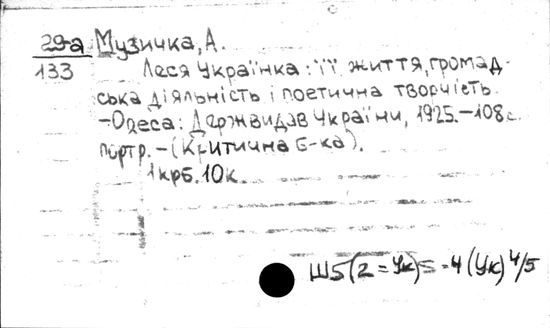 29-а Музичка, А.
133
Леся Українка: її життя, громад-
ська діяльність і поетична творчість.
-Одеса: Держвидав України, 1925.-108 с.
портр. - (Критична б-ка).
1 крб. 10 к.
Ш5(2=Ук)5-4 (Ук) 4/5